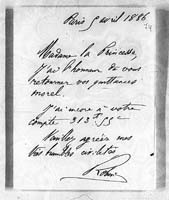 Paris 5 avril 1886
74
Madame la Princesse,
J'ai l'honneur de vous
retourner vos quittances
Morel.
J'ai encore à votre
compte 313f 55c
Veuillez agréer mes
très humbles civilités